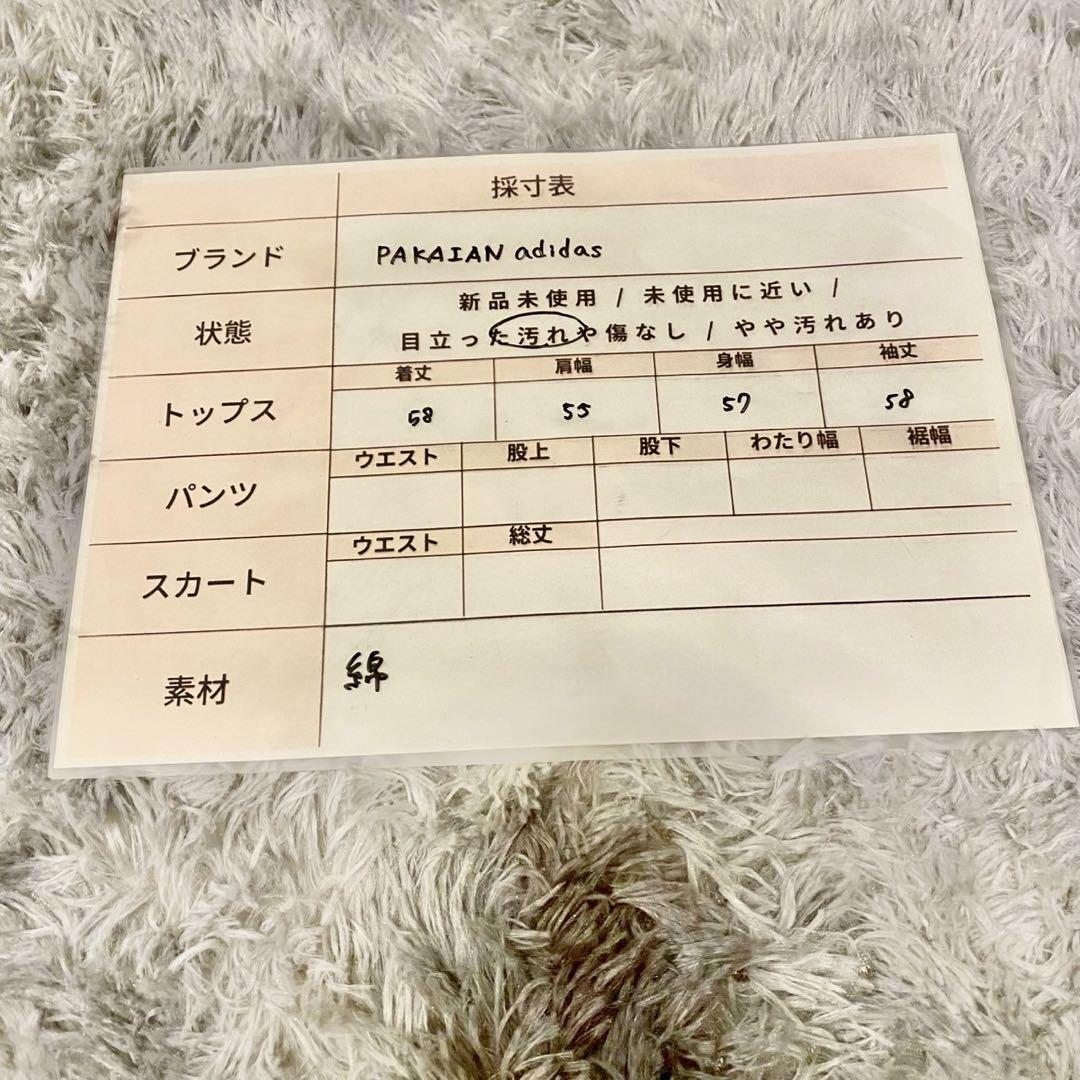 採寸表
ブランド PAKAIAN adidas
状態 新品未使用 / 未使用に近い /
目立った汚れや傷なし / やや汚れあり
着丈 肩幅 身幅 袖丈
トップス 58 55 57 58
ウエスト 股上 股下 わたり幅 裾幅
パンツ
ウエスト 総丈
スカート
素材 綿